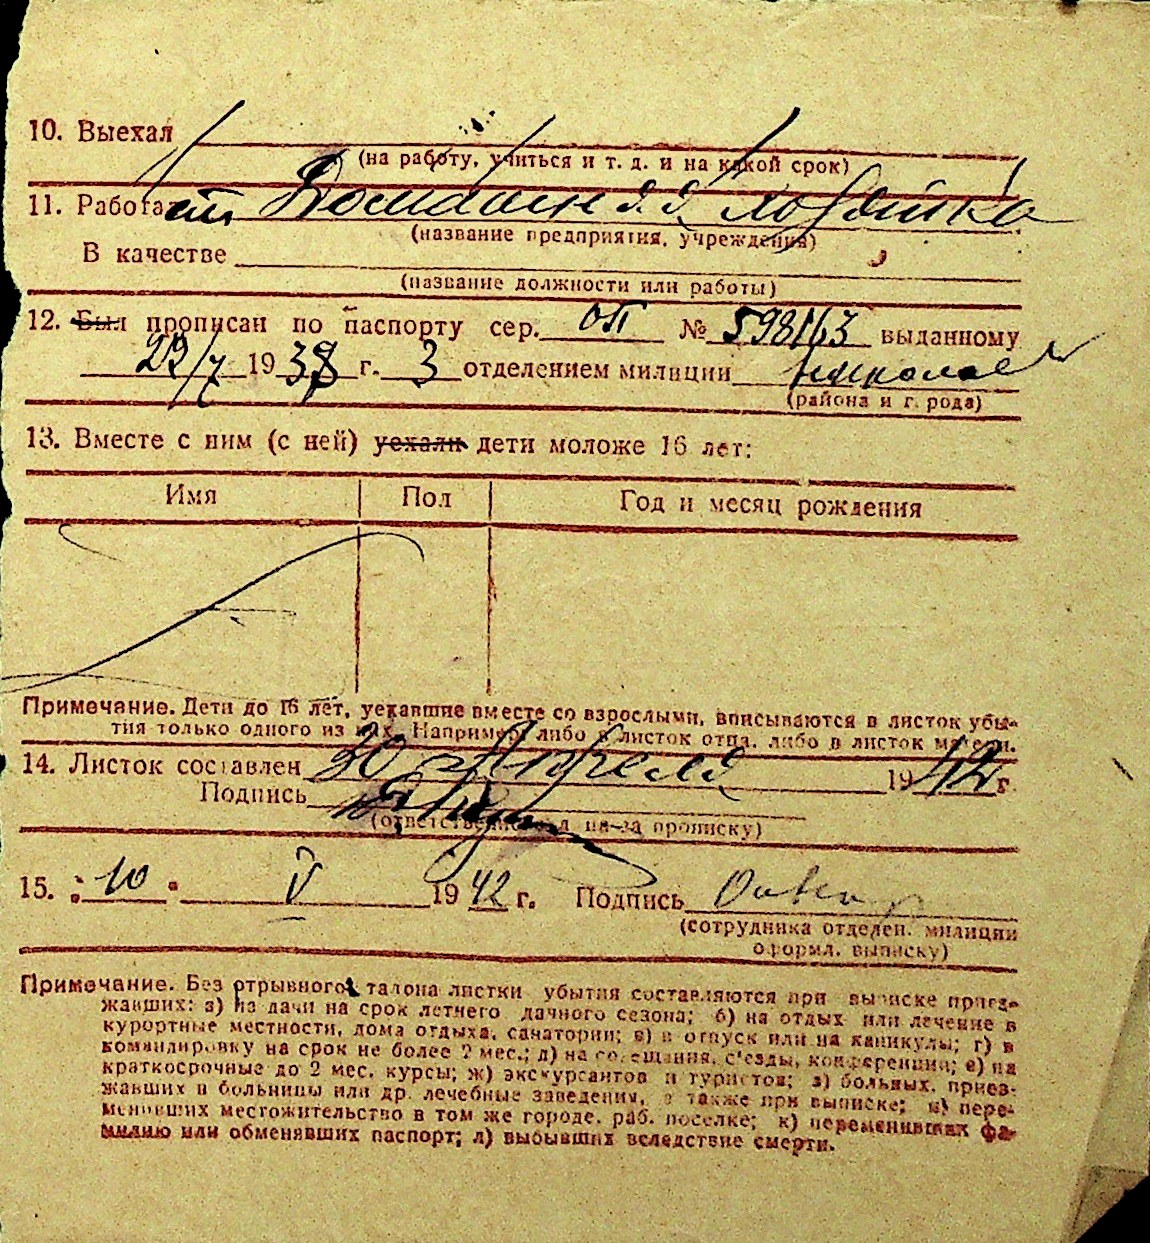 10. Выехал
(на работу, учиться и т. д. и на какой срок)
11. Работает Домашняя хозяйка
(название предприятия, учреждения)
В качестве
(название должности или работы)
12. Был прописан по паспорту сер. ОП № 598163 выданному
29/7 1938 г. 3 отделением милиции Николаев
(района и г. рода)
13. Вместе с ним (с ней) уехали дети моложе 16 лет:
Имя Пол Год и месяц рождения
Примечание. Дети до 16 лет, уехавшие вместе со взрослыми, вписываются в листок убы-
тия только одного из них. Например либо в листок отца, либо в листок матери.
14. Листок составлен 30 Апреля 1942 г.
Подпись
(ответственного л на-за прописку)
15. "10" V 1942 г. Подпись
(сотрудника отделен. милиции
оформл. выписку)
Примечание. Без отрывного талона листки убытия составляются при выписке приез-
жавших: а) на дачи на срок летнего дачного сезона; б) на отдых или лечение в
курортные местности, дома отдыха, санатории; в) в отпуск или на каникулы; г) в
командировку на срок не более 2 мес.; д) на совещания, съезды, конференции; е) на
краткосрочные до 2 мес. курсы; ж) экскурсантов и туристов; з) больных, приез-
жавших в больницы или др. лечебные заведения, а также при выписке; и) пере-
менивших местожительство в том же городе, раб. поселке; к) переменивших фа-
милию или обменявших паспорт; л) выбывших вследствие смерти.